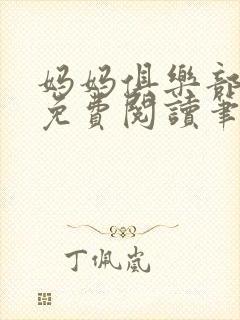 妈妈俱樂部
免費閱讀筆
丁佩嵐